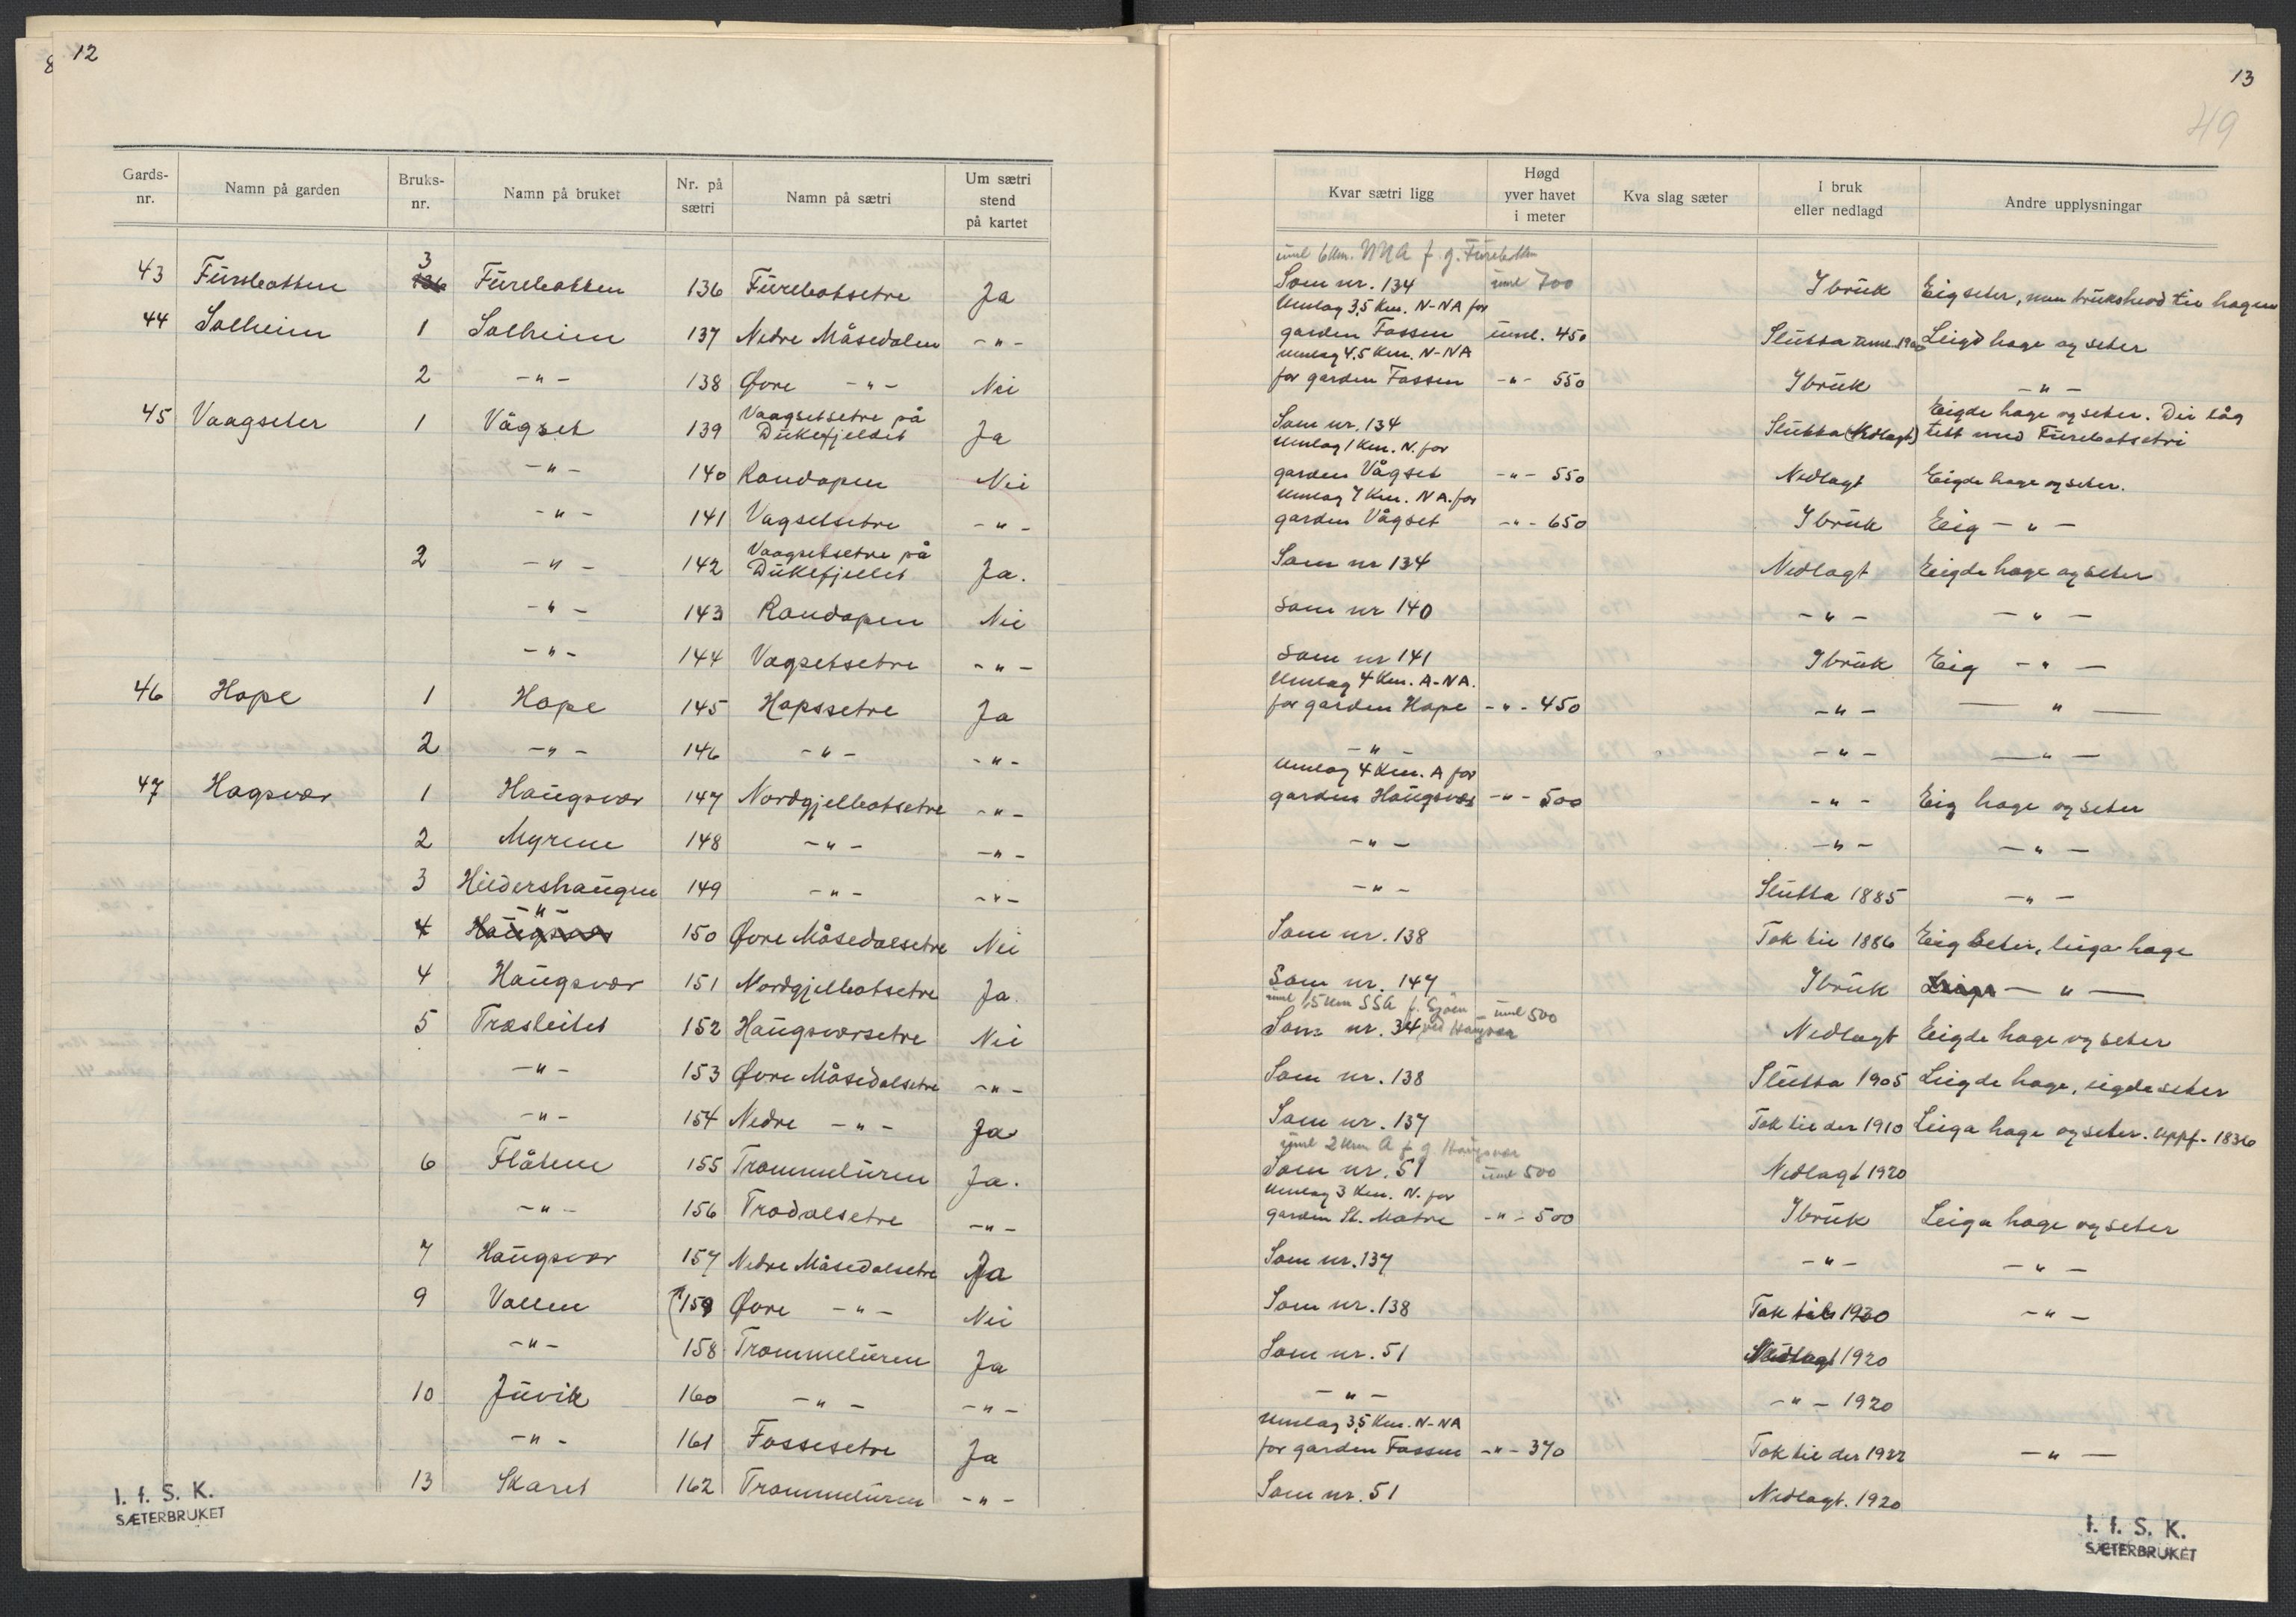 12
Gards-nr. Namn på garden Bruks-nr. Namn på bruket Nr. på sætri Namn på sætri Um sætri stend på kartet
43 Furebotten 3 Furebotten 136 Furebotsetre Ja
44 Solheim 1 Solheim 137 Nedre Måsedalen -"-
2 -"- 138 Øvre -"- Nei
45 Vaagseter 1 Vågset 139 Vaagsetsetre på Dukefjeldet Ja
-"- 140 Randopen Nei
-"- 141 Vagsetsetre -"-
2 -"- 142 Vaagsetsetre på Dukefjellet Ja.
-"- 143 Randopen Nei
-"- 144 Vagsetsetre -"-
46 Hope 1 Hope 145 Hopssetre Ja
2 -"- 146 -"- -"-
47 Hagsvær 1 Haugsvær 147 Nordgjelbotsetre -"-
2 Myrene 148 -"- -"-
3 Hildershaugen 149 -"- -"-
4 Haugsvær -"- 150 Øvre Måsedalsetre Nei
4 Haugsvær 151 Nordgjelbotsetre Ja.
5 Træsleitet 152 Haugsværsetre Nei
-"- 153 Øvre Måsedalsetre -"-
-"- 154 Nedre -"- Ja
6 Flåtene 155 Trommeluren Ja.
-"- 156 Trodalsetre -"-
7 Haugsvær 157 Nedre Måsedalsetre Ja
9 Vallen 159 Øvre -"- Nei
-"- 158 Trommeluren Ja
10 Juvik 160 -"- -"-
-"- 161 Fossesetre Ja
13 Skaret 162 Trommeluren -"-
I. f. S. K.
SÆTERBRUKET
13
49
Kvar sætri ligg Høgd yver havet i meter Kva slag sæter I bruk eller nedlagd Andre upplysningar
uml 6 km. NNA f. g. Furebotten
Som nr. 134 uml 700 I bruk Eig seter, men brukshevd til hagen
Umlag 3,5 Km. N-NA for
garden Fossen uml. 450 Slutta uml. 1900 Leigd hage og seter
Umlag 4,5 Km. N-NA
for garden Fossen -"- 550 I bruk -"-
Som nr. 134 Slutta (Nedlagt) Eigde hage og seter. Dei låg tett med Furebotsetri
Umlag 1 Km. N. for
garden Vågset -"- 550 Nedlagt Eigde hage og seter.
Umlag 7 Km. NA. for
garden Vågset -"- 650 I bruk Eig -"-
Som nr 134 Nedlagt Eigde hage og seter
Som nr 140 -"- -"-
Som nr 141 I bruk Eig -"-
Umlag 4 Km. A-NA.
for garden Hope -"- 450 -"- -"-
-"- -"- -"-
Umlag 4 Km. A for
garden Haugsvær -"- 500 -"- Eig hage og seter
-"- -"- -"-
-"- Slutta 1885 -"-
Som nr. 138 Tok til 1886 Eig seter, leiga hage
Som nr. 147 I bruk -"-
uml 1,5 km SSA f. Sjøen ved Haugsvær - uml 500
Som nr. 34 Nedlagt Eigde hage og seter
Som nr. 138 Slutta 1905 Leigde hage, eigde seter
Som nr. 137 Tok til der 1910 Leiga hage og seter. Uppf. 1836
uml 2 km A f g Haugsvær
Som nr. 51 uml 500 Nedlagt 1920
Umlag 3 Km. N. for
garden St. Matre -"- 500 I bruk Leiga hage og seter
Som nr. 137 -"- -"-
Som nr. 138 Tok til 1920 -"-
Som nr. 51 Nedlagt 1920
-"- -"- 1920
Umlag 3,5 Km. N-NA
for garden Fossen -"- 370 Tok til der 1922 -"-
Som nr. 51 Nedlagt. 1920
I. f. S. K.
SÆTERBRUKET